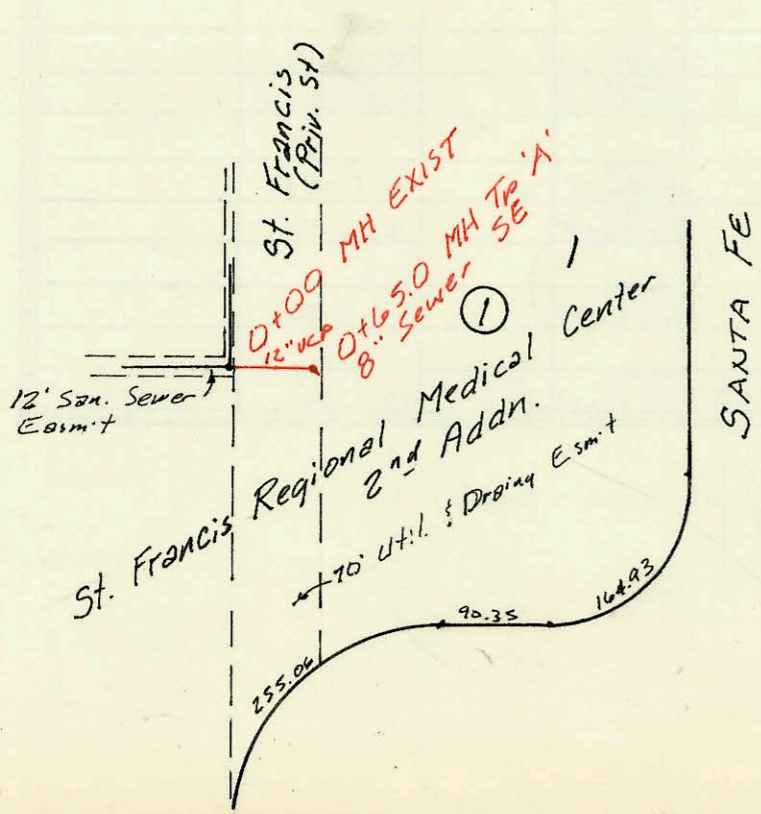 St. Francis
(Priv. St)
0+00 MH EXIST
12" VCP
0+65.0 MH Tp 'A'
8" Sewer SE
1
1
SANTA FE
12' San. Sewer
Easm't
St. Francis Regional Medical Center
2nd Addn.
70' Util. & Draing Esm't
255.06
90.35
164.93